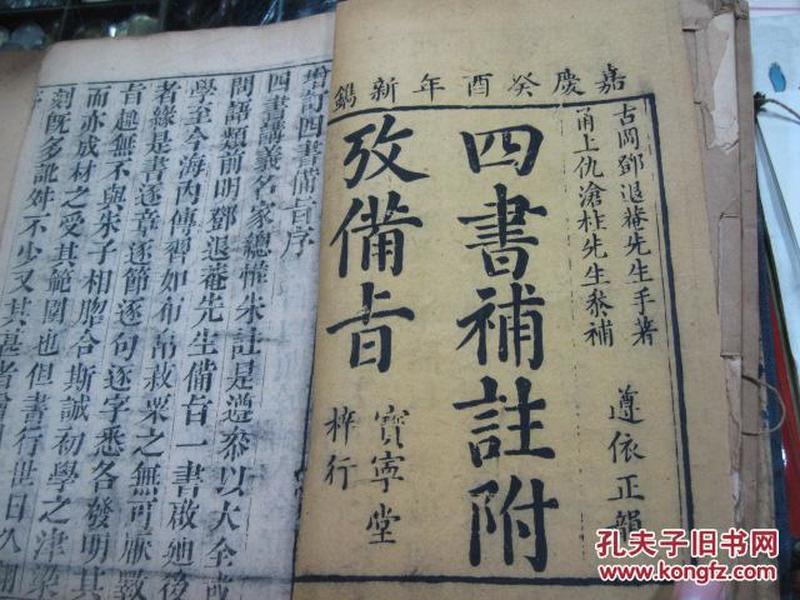 嘉慶癸酉年新鐫
古岡鄧退菴先生手著
甬上仇滄柱先生叅補
遵依正韻
四書補註附
攷備旨
寳寧堂
梓行
增訂四書備旨序
四書講義名家總惟朱註是遵泰以大全或
問語類前明鄧退菴先生備旨一書啟廸後
學至今海內傳習如布帛菽粟之無可厭斁
者緣是書逐章逐節逐句逐字悉各發明其
旨趣無不與朱子相脗合斯誠初學之津梁
而亦成材之受其範圍也但書行世日久翻
刻旣多訛舛不少又其甚者
孔夫子旧书网
www.kongfz.com